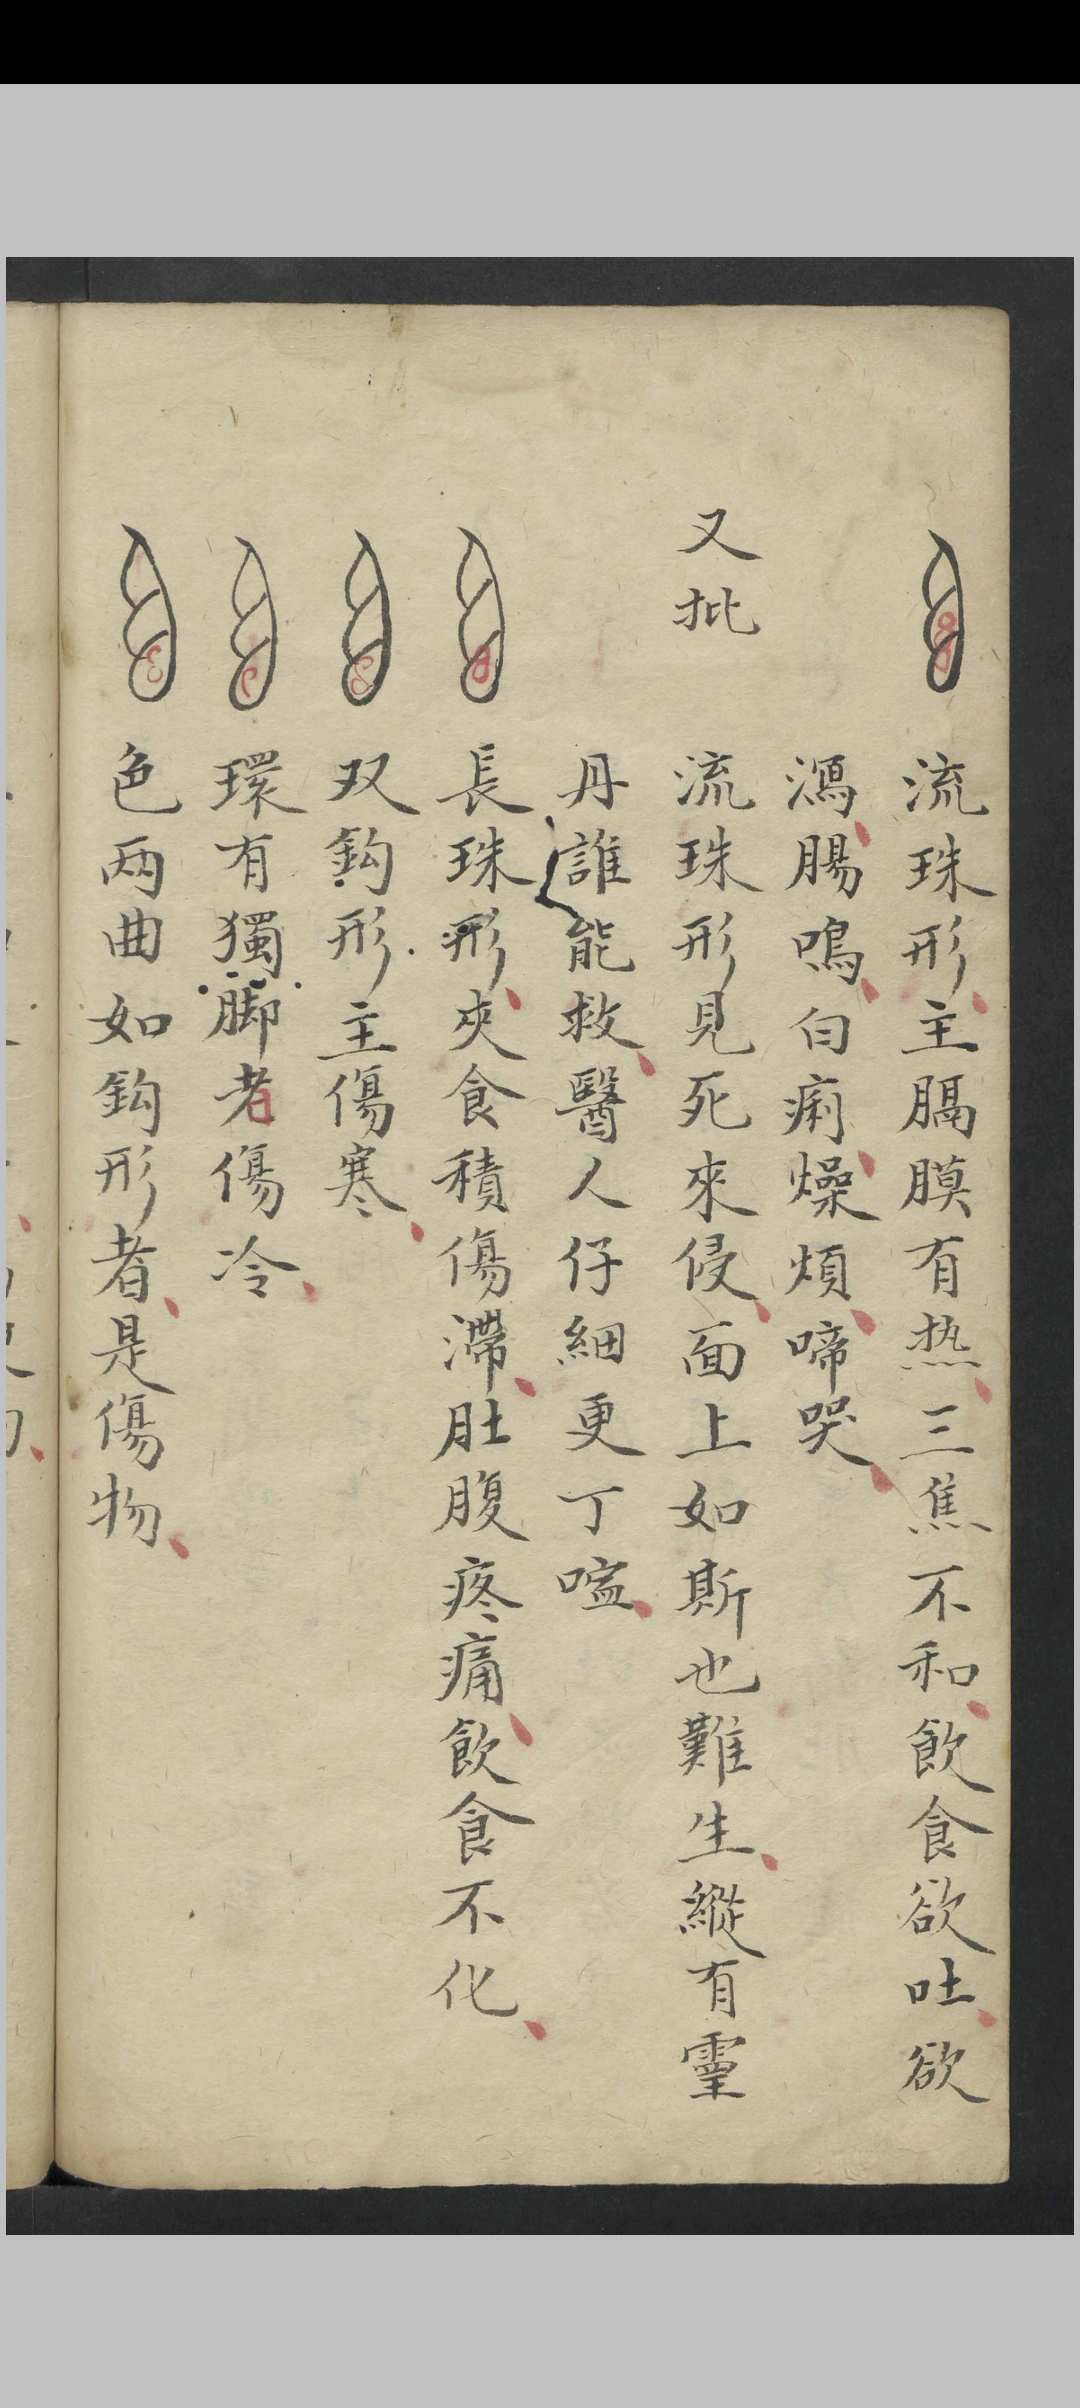 流珠形主膈膜有热三焦不和飲食欲吐欲
瀉腸鳴白痢燥煩啼哭
又批
流珠形見死來侵面上如斯也難生縱有靈
丹誰能救醫人仔細更丁嗑
長珠形夾食積傷滯肚腹疼痛飲食不化
双鈎形主傷寒
環有獨脚者傷冷
色两曲如鈎形者是傷物